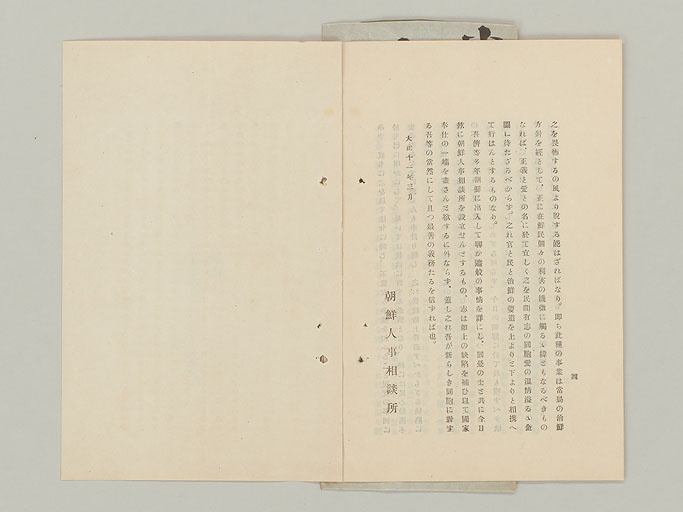 之を畏怖するの風より脫する能はざればなり。卽ち此種の事業は當局の治鮮
方針を經として、正に在鮮民個々の利害の機微に觸るゝ緯ともなるべきもの
なれば、正義と愛との名に於て宜しく之を民間有志の同胞愛の溫情溢るゝ企
圖に待たざるべからず。之れ官と民と治鮮の要道を上よりと下よりと相携へ
て行はんとするものなり。
吾儕等多年朝鮮に出入して聊か這般の事情を詳にし、同憂の士と共に今日
玆に朝鮮人事相談所を設立せんとするもの、志は如上の缺陷を補ひ以て國家
奉仕の一端を盡さんと欲するに外ならず、蓋し之れ吾が新らしき同胞に對す
る吾等の當然にして且つ最善の義務たるを信ずれば也。
大正十一年三月
朝鮮人事相談所
四